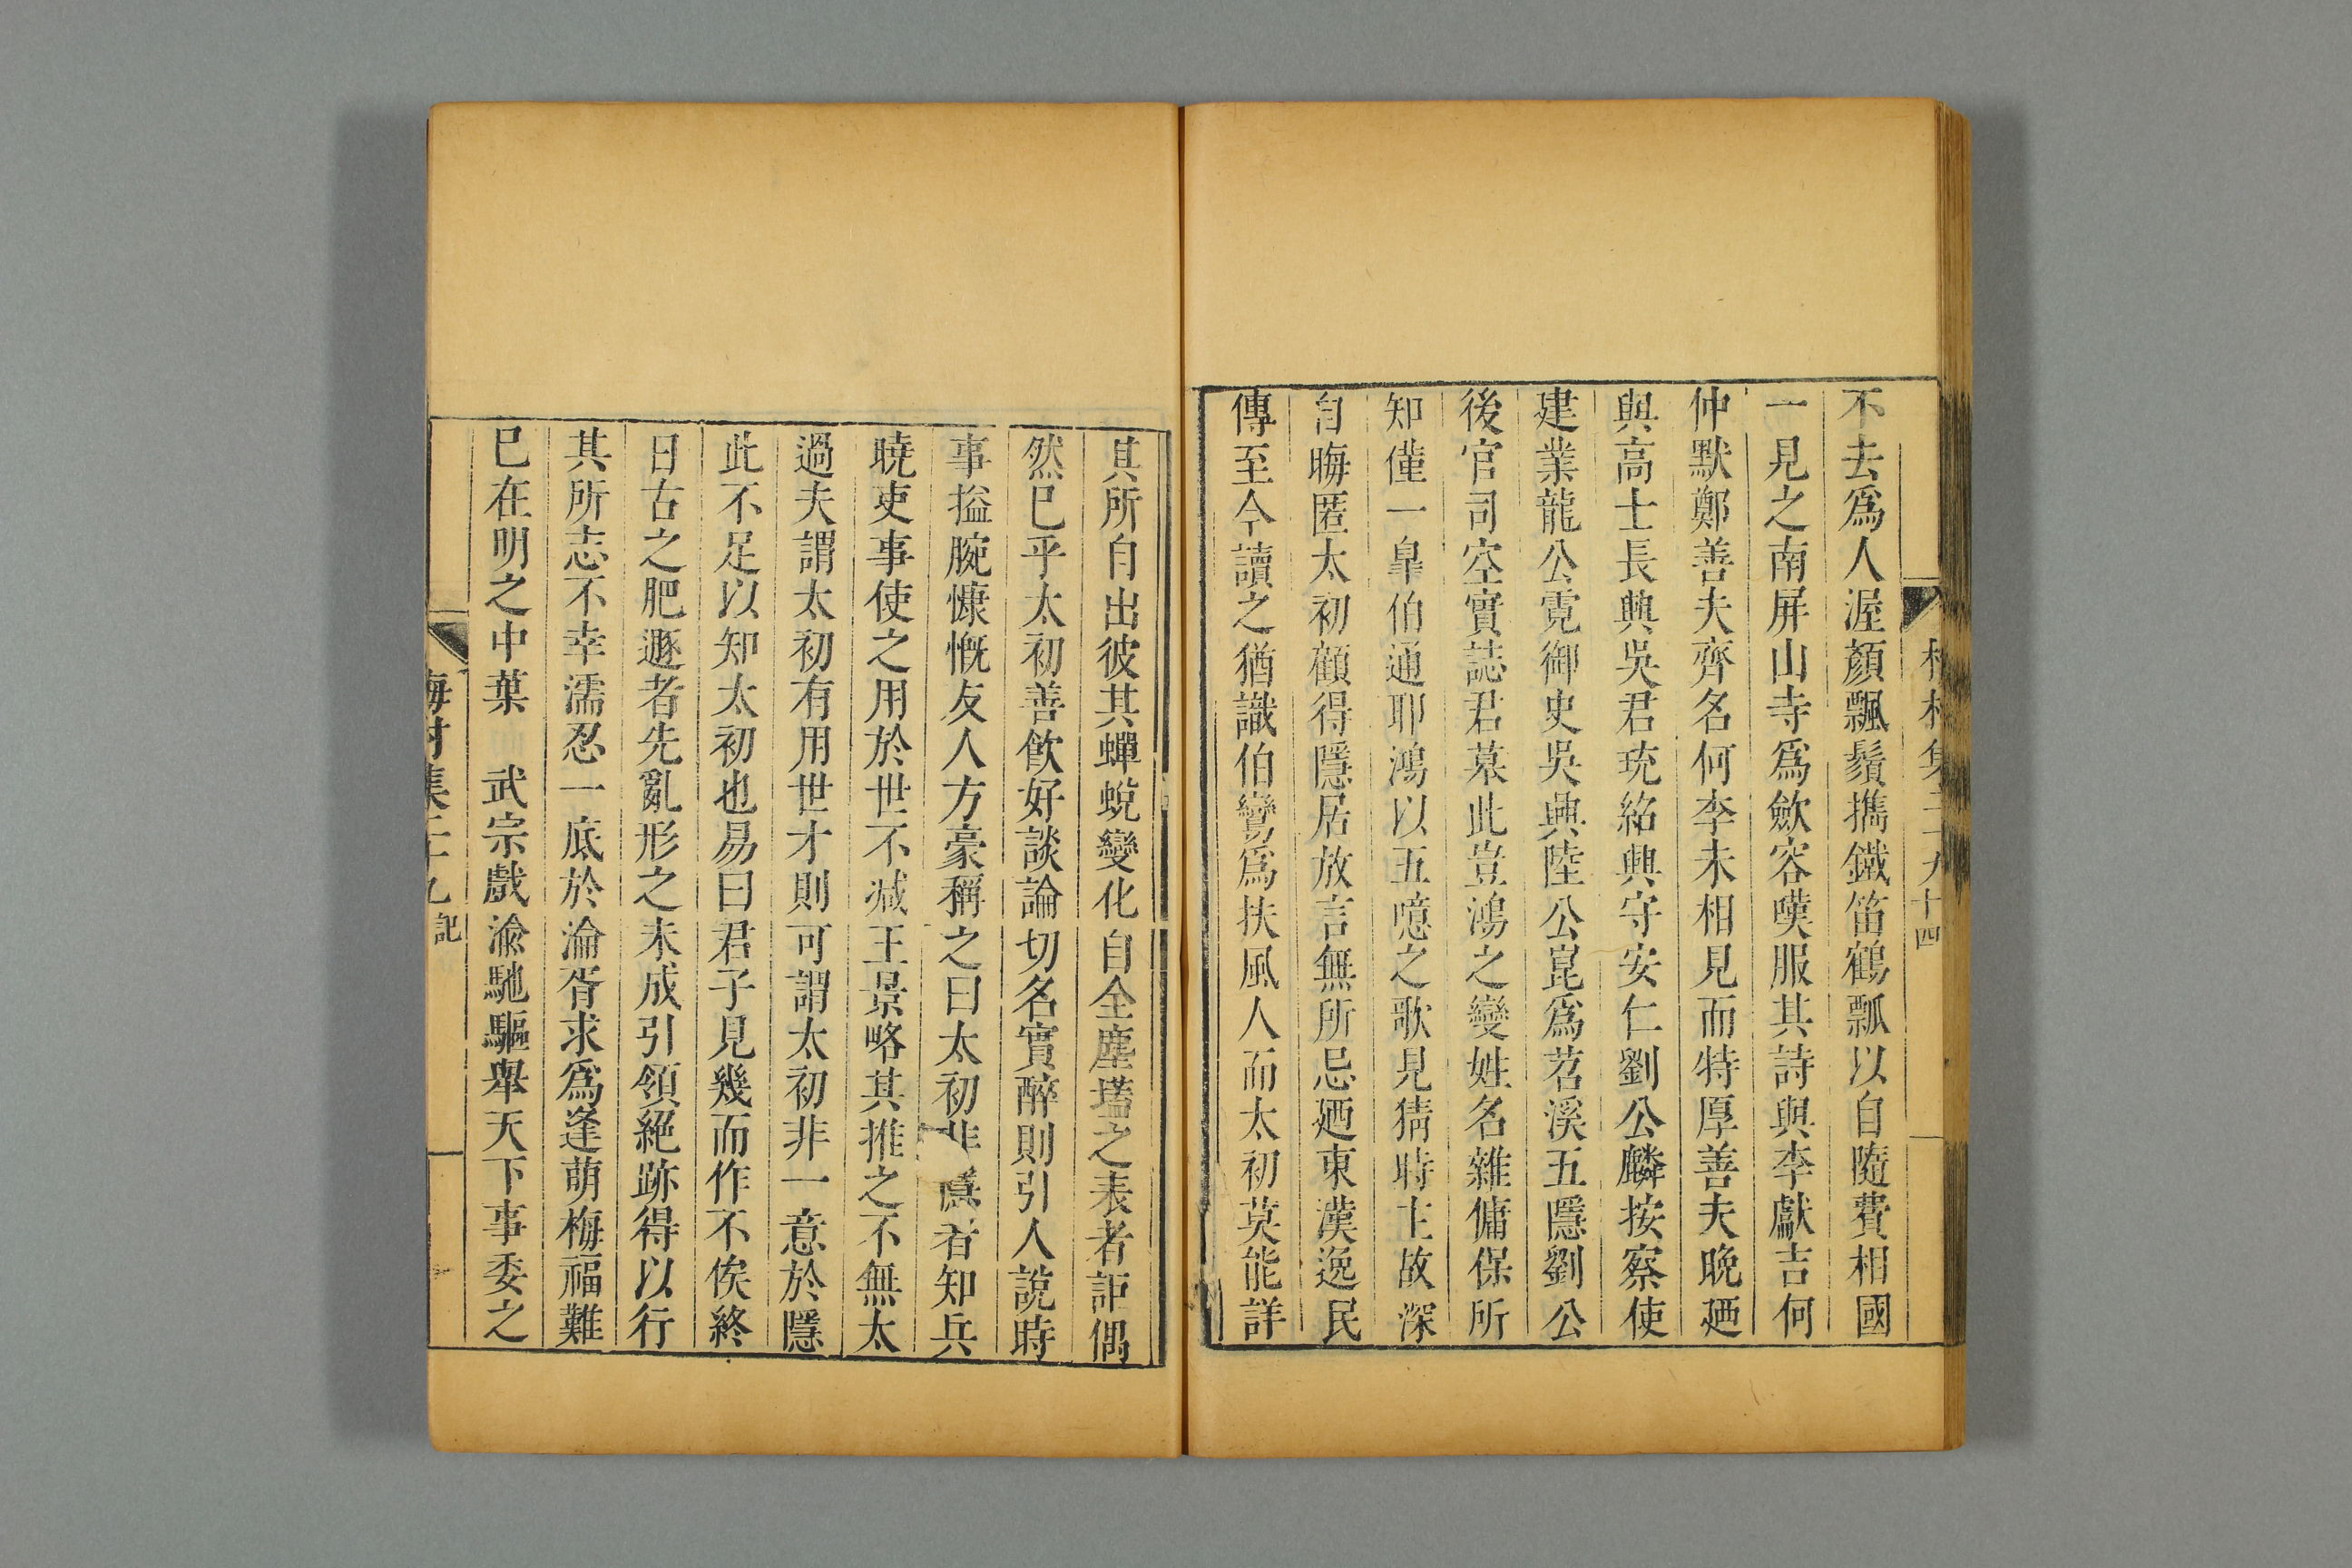 不去爲人渥顏飄鬚擕鐵笛鶴瓢以自隨費相國
一見之南屏山寺爲歛容嘆服其詩與李獻吉何
仲默鄭善夫齊名何李未相見而特厚善夫晚廼
與高士長興吳君珫紹興守安仁劉公麟按察使
建業龍公霓御史吳興陸公崑爲苕溪五隱劉公
後官司空實誌君墓此豈鴻之變姓名雜傭保所
知僅一臯伯通耶鴻以五噫之歌見猜時主故深
自晦匿太初顧得隱居放言無所忌廼東漢逸民
傳至今讀之猶識伯鸞爲扶風人而太初莫能詳
其所自出彼其蟬蛻變化自全塵壒之表者詎偶
然巳乎太初善飲好談論切名實醉則引人說時
事搤腕慷慨友人方豪稱之曰太初非隱者知兵
曉吏事使之用於世不減王景略其推之不無太
過夫謂太初有用世才則可謂太初非一意於隱
此不足以知太初也易曰君子見幾而作不俟終
日古之肥遯者先亂形之未成引領絕跡得以行
其所志不幸濡忍一底於淪胥求爲逢萌梅福難
巳在明之中葉　武宗戲渝馳驅舉天下事委之
梅村集三十九 記